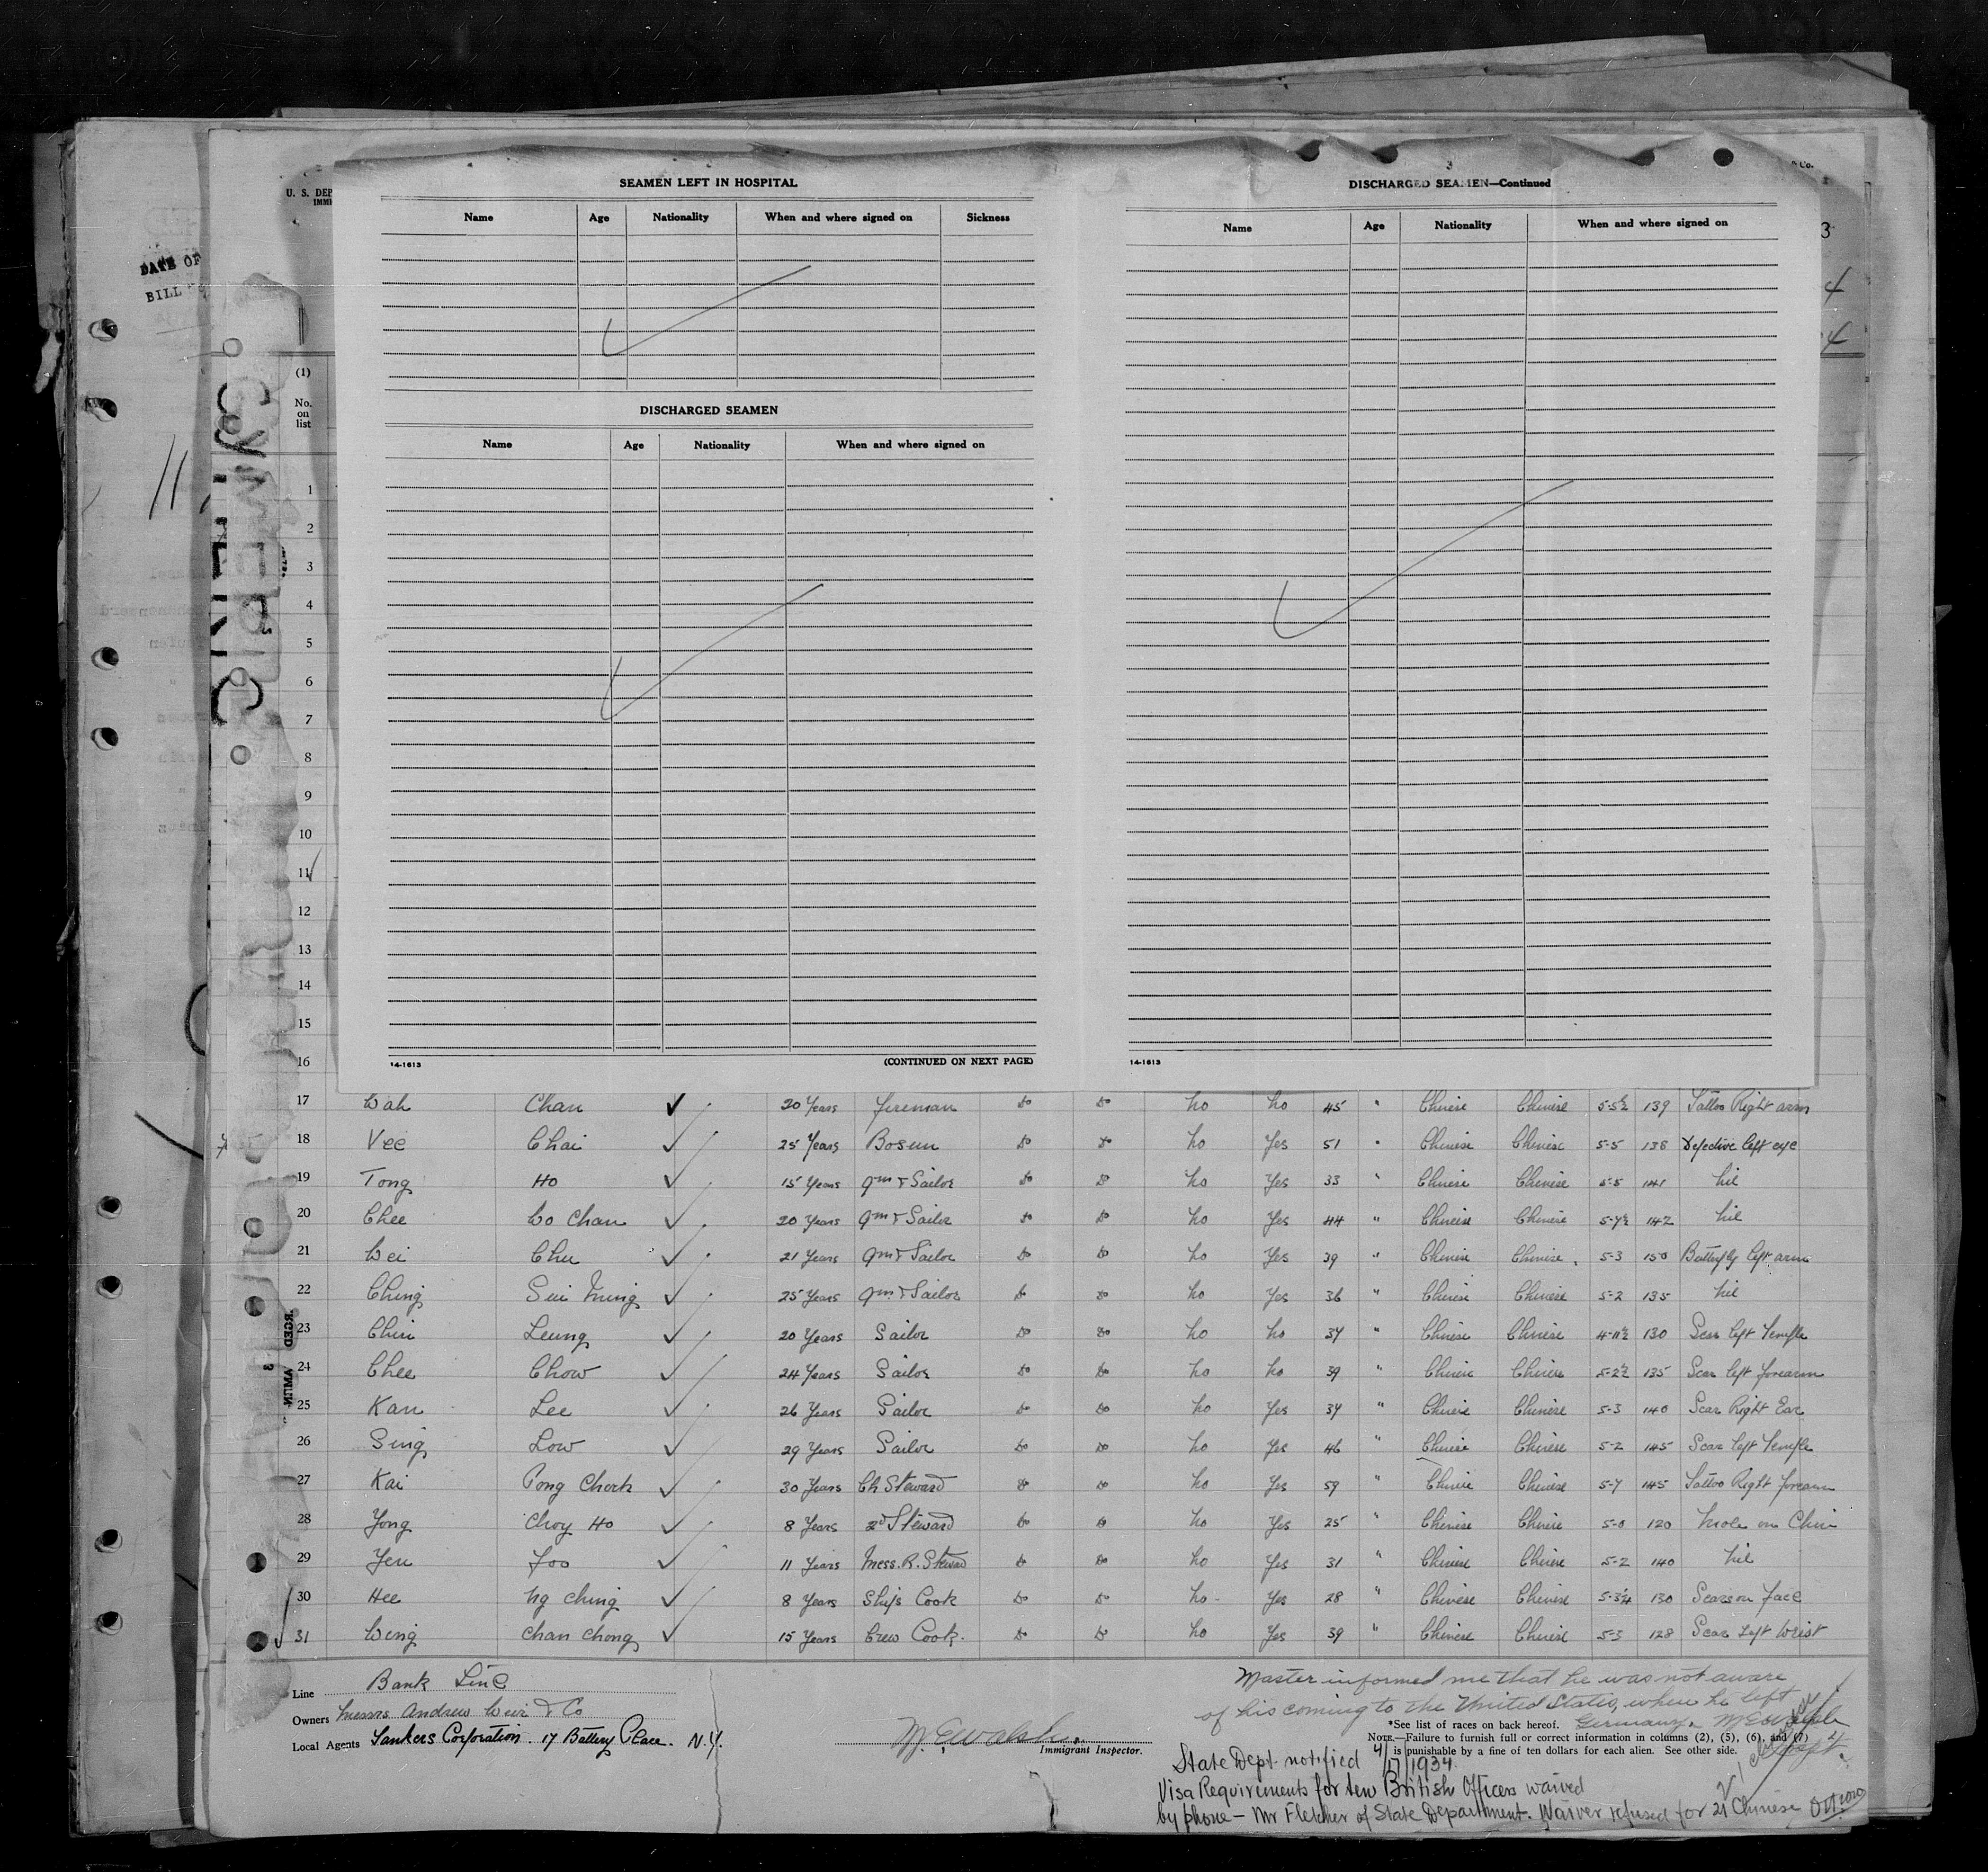 U. S. DEP
IMMI
DATE OF
BILL
CYMERIC
(1)
No.
on
list
SEAMEN LEFT IN HOSPITAL
Name Age Nationality When and where signed on Sickness
DISCHARGED SEAMEN
Name Age Nationality When and where signed on
14-1613 (CONTINUED ON NEXT PAGE)
3
DISCHARGED SEAMEN—Continued
Name Age Nationality When and where signed on
14-1613
& Co.
3
4
4
1
2
3
4
5
6
7
8
9
10
11
12
13
14
15
16
17 Wah Chan 20 Years Fireman Do Do No No 45 " Chinese Chinese 5-5½ 139 Tattoo Right arm
18 Vee Chai 25 Years Bosun Do Do No Yes 51 " Chinese Chinese 5-5 138 Defective left eye
19 Tong Ho 15 Years Qm & Sailor Do Do No Yes 33 " Chinese Chinese 5-5 141 Nil
20 Chee Wo Chan 20 Years Qm & Sailor Do Do No Yes 44 " Chinese Chinese 142 Nil
21 Wei Chu 21 Years Qm & Sailor Do Do No Yes 39 " Chinese Chinese 5-3 150 Butterfly left arm
22 Ching Sui Ming 25 Years Qm & Sailor Do Do No Yes 36 " Chinese Chinese 5-2 135 Nil
23 Chin Leung 20 Years Sailor Do Do No No 37 " Chinese Chinese 4-11½ 130 Scar left Temple
24 Chee Chow 24 Years Sailor Do Do No No 39 " Chinese Chinese 5-2½ 135 Scar left forearm
25 Kan Lee 26 Years Sailor Do Do No Yes 37 " Chinese Chinese 5-3 140 Scar Right Ear
26 Sing Low 29 Years Sailor Do Do No Yes 46 " Chinese Chinese 5-2 145 Scar left Temple
27 Kai Pong Chock 30 Years Ch Steward Do Do No Yes 59 " Chinese Chinese 5-7 145 Tattoo Right forearm
28 Yong Choy Ho 8 Years 2nd Steward Do Do No Yes 25 " Chinese Chinese 5-0 120 Mole on Chin
29 Yen Foo 11 Years Mess. R. Steward Do Do No Yes 31 " Chinese Chinese 5-2 140 Nil
30 Hee Ng Ching 8 Years Ships Cook Do Do No Yes 28 " Chinese Chinese 5-3¼ 130 Scars on face
31 Wing Chan Chong 15 Years Crew Cook. Do Do No Yes 39 " Chinese Chinese 5-3 128 Scar Left Wrist
Line Bank Line
Owners Messrs Andrew Weir & Co
Local Agents Tankers Corporation. 17 Battery Place. N.Y.
M. E. Walsh.
Immigrant Inspector.
Master informed me that he was not aware
of his coming to the United States, when he left
Germany. M E Walsh
*See list of races on back hereof.
NOTE.—Failure to furnish full or correct information in columns (2), (5), (6), and (7)
is punishable by a fine of ten dollars for each alien. See other side.
State Dept. notified 4/17/1934
Visa Requirements for ten British Officers waived
by phone — Mr Fletcher of State Department. Waiver refused for 21 Chinese